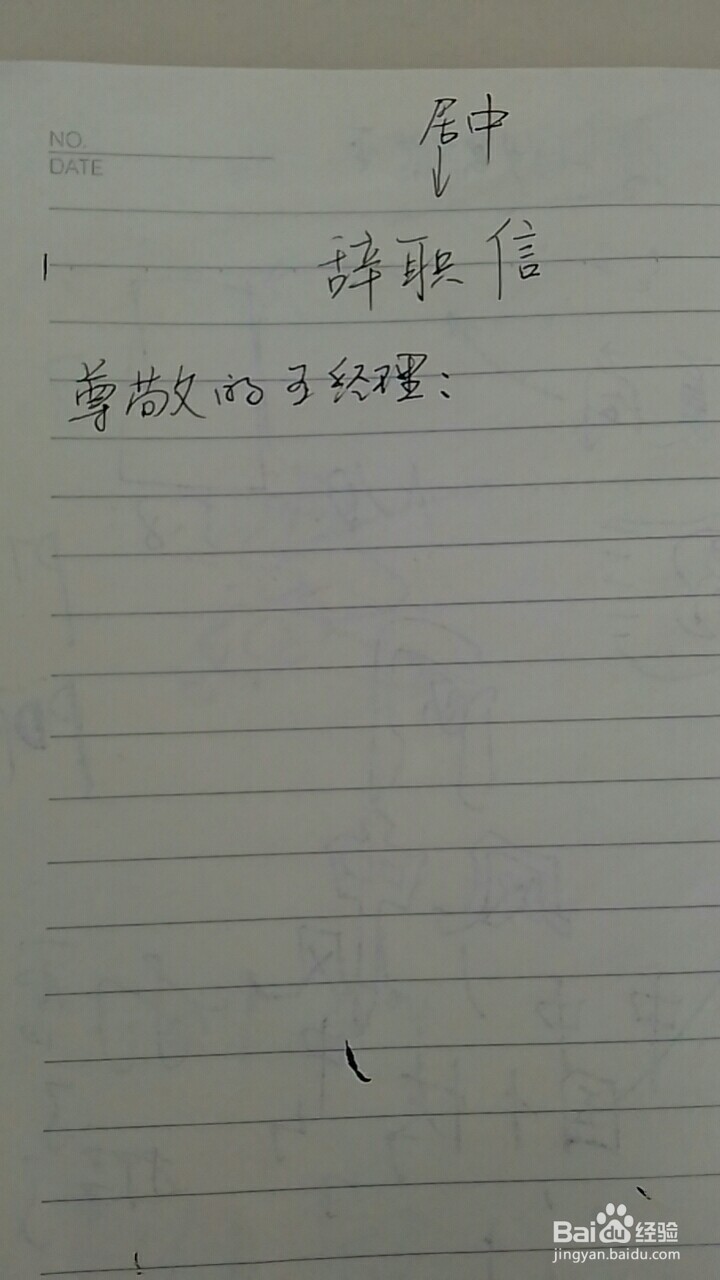 NO.
DATE
居中
辞职信
尊敬的王经理：
Baidu经验
jingyan.baidu.com